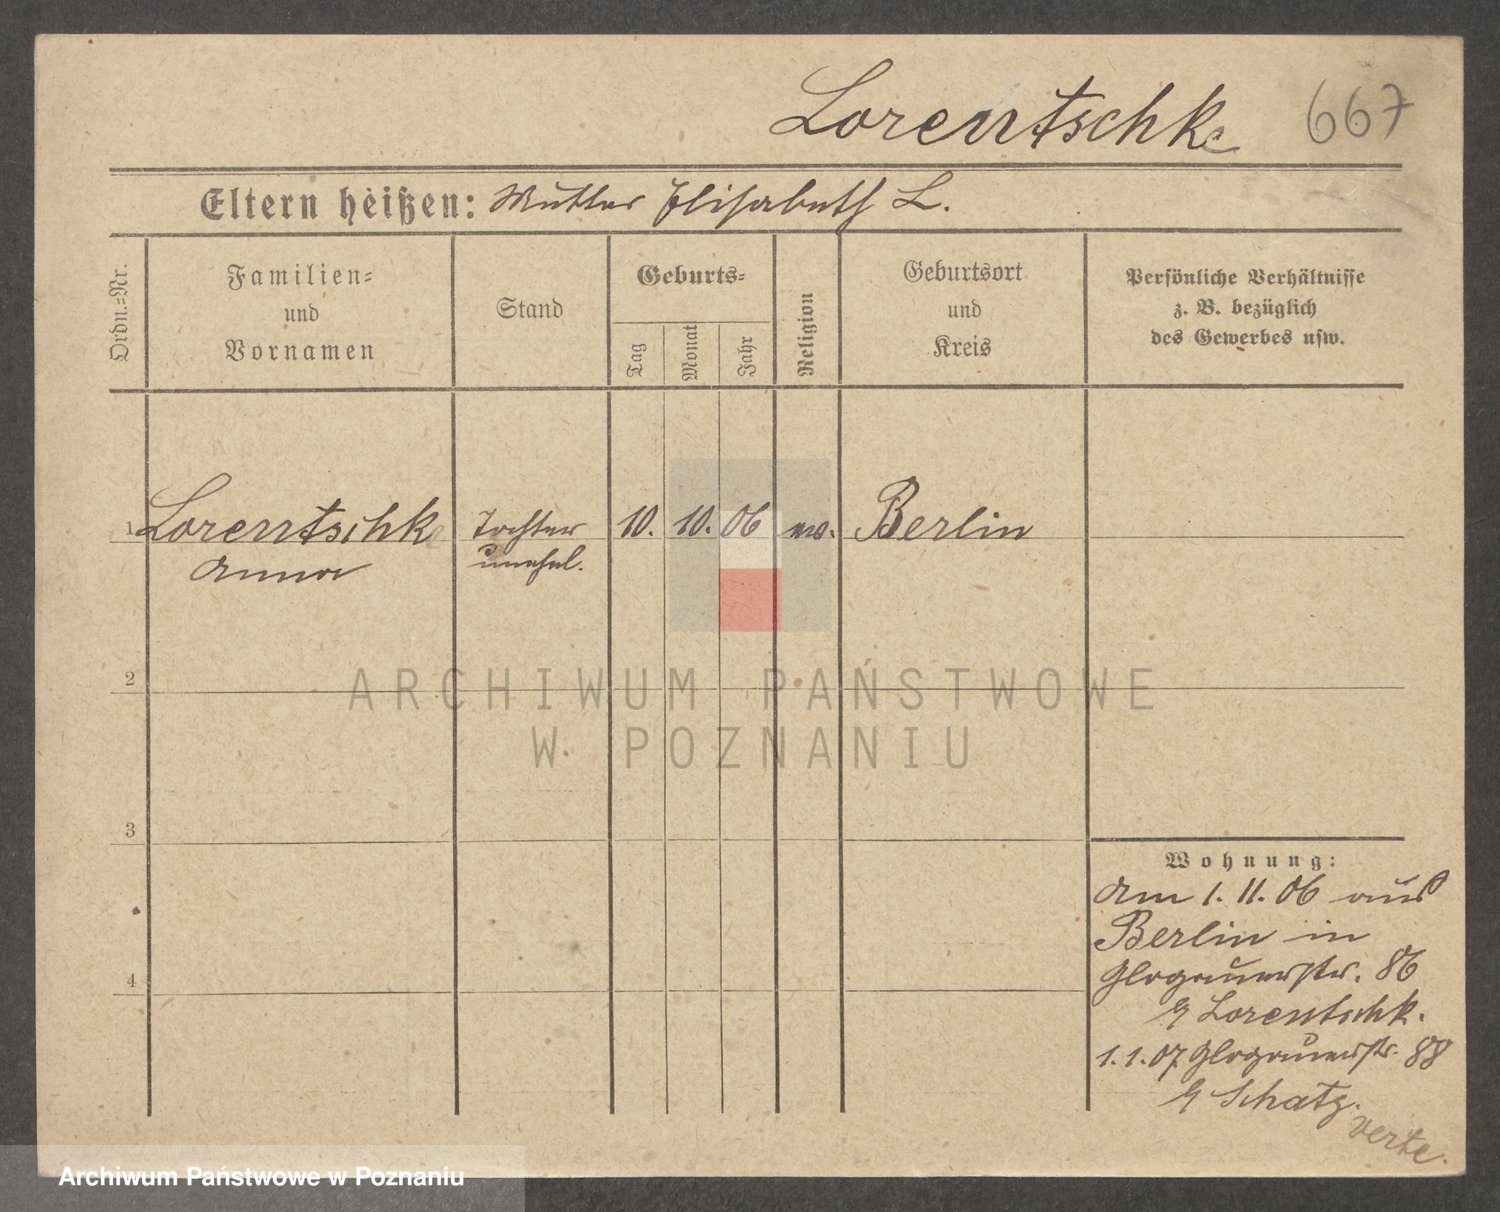 Lorentschke 667
Eltern heißen: Mutter Elisabeth L.
Ordn.=Nr.
Familien=
und
Vornamen
Stand
Geburts=
Tag
Monat
Jahr
Religion
Geburtsort
und
Kreis
Persönliche Verhältnisse
z. B. bezüglich
des Gewerbes usw.
1 Lorentschke Tochter 10. 10. 06 ev. Berlin
Anna unehel.
2
3
4
Wohnung:
Am 1. 11. 06 aus
Berlin in
Glogauerstr. 86
Lorentschk.
1.1.07 Glogauerstr. 88
Schatz.
verte.
ARCHIWUM PAŃSTWOWE
W POZNANIU
Archiwum Państwowe w Poznaniu